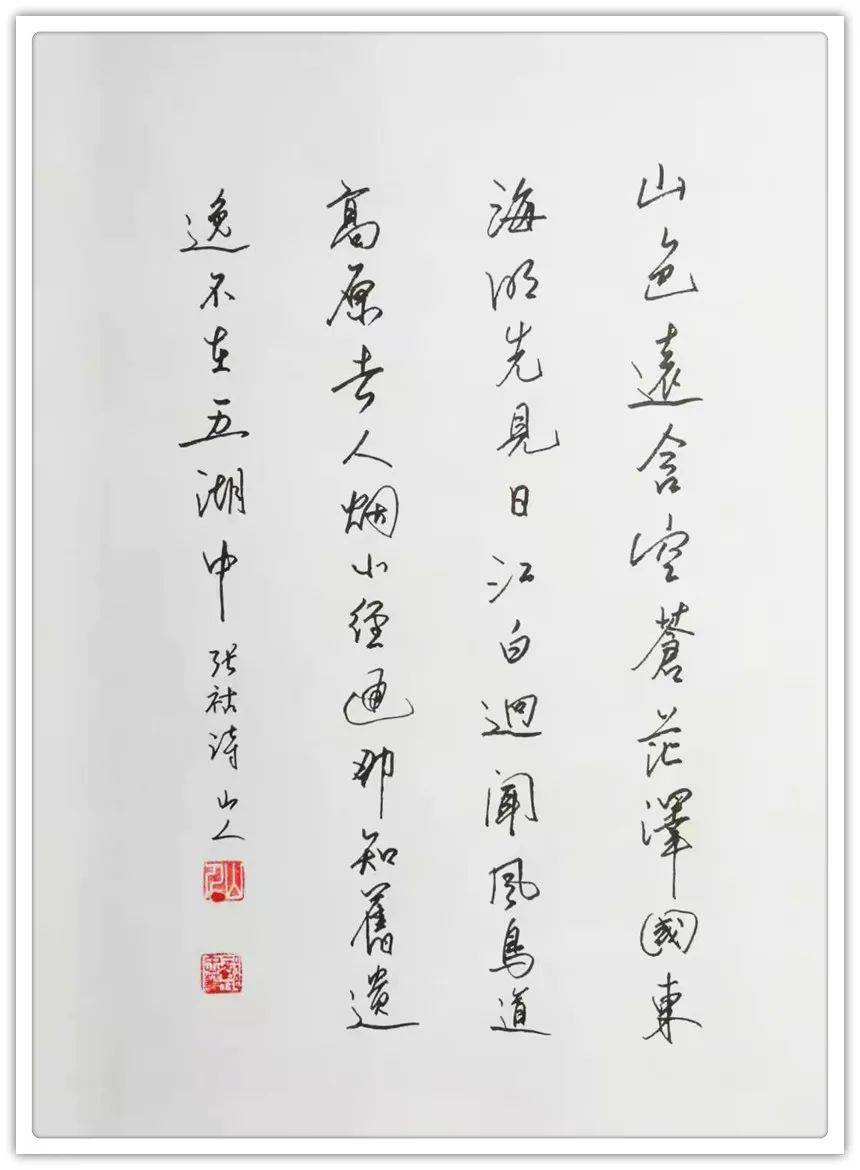 山色遠含空蒼茫澤國東
海明先見日江白迥聞風鳥道
高原去人烟小徑通那知舊遺
逸不在五湖中張祜詩山人